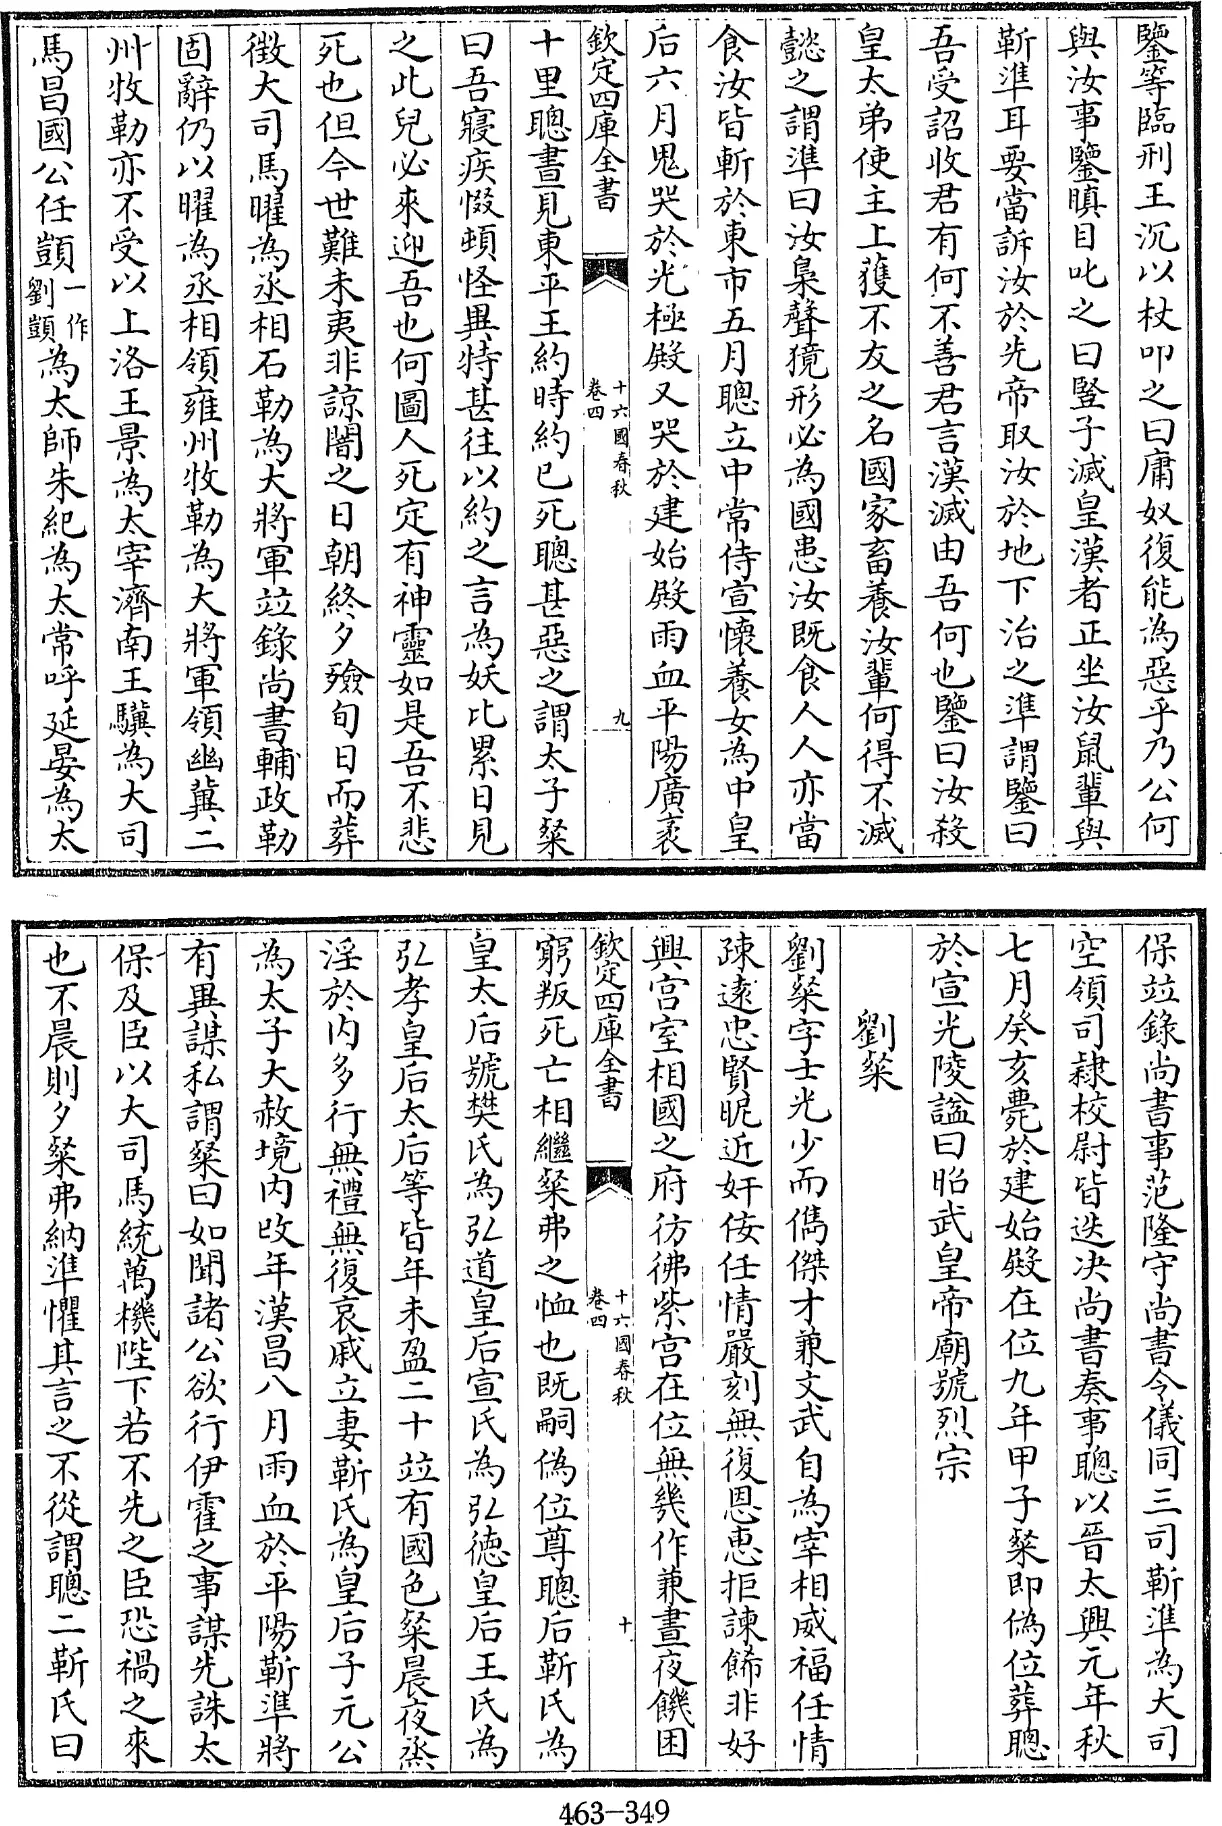 鑒等臨刑王沉以杖叩之曰庸奴復能為惡乎乃公何
與汝事鑒瞋目叱之曰豎子滅皇漢者正坐汝鼠輩與
靳準耳要當訴汝於先帝取汝於地下治之準謂鑒曰
吾受詔收君有何不善君言漢滅由吾何也鑒曰汝殺
皇太弟使主上獲不友之名國家畜養汝輩何得不滅
懿之謂準曰汝梟聲獍形必為國患汝既食人人亦當
食汝皆斬於東市五月聰立中常侍宣懷養女為中皇
后六月鬼哭於光極殿又哭於建始殿雨血平陽廣袤
欽定四庫全書
十六國春秋
卷四
九
十里聰晝見東平王約時約已死聰甚惡之謂太子粲
曰吾寢疾惙頓怪異特甚往以約之言為妖比累日見
之此兒必來迎吾也何圖人死定有神靈如是吾不悲
死也但今世難未夷非諒闇之日朝終夕殮旬日而葬
徵大司馬曜為丞相石勒為大將軍竝錄尚書輔政勒
固辭仍以曜為丞相領雍州牧勒為大將軍領幽冀二
州牧勒亦不受以上洛王景為太宰濟南王驥為大司
馬昌國公任顗一作劉顗為太師朱紀為太常呼延晏為太
保竝錄尚書事范隆守尚書令儀同三司靳準為大司
空領司隸校尉皆迭決尚書奏事聰以晉太興元年秋
七月癸亥薨於建始殿在位九年甲子粲即偽位葬聰
於宣光陵諡曰昭武皇帝廟號烈宗
劉粲
劉粲字士光少而儁傑才兼文武自為宰相威福任情
疎遠忠賢昵近奸佞任情嚴刻無復恩惠拒諫餙非好
興宮室相國之府彷彿紫宮在位無幾作兼晝夜饑困
欽定四庫全書
十六國春秋
卷四
十
窮叛死亡相繼粲弗之恤也既嗣偽位尊聰后靳氏為
皇太后號樊氏為弘道皇后宣氏為弘德皇后王氏為
弘孝皇后太后等皆年未盈二十竝有國色粲晨夜烝
淫於內多行無禮無復哀戚立妻靳氏為皇后子元公
為太子大赦境內改年漢昌八月雨血於平陽靳準將
有異謀私謂粲曰如聞諸公欲行伊霍之事謀先誅太
保及臣以大司馬統萬機陛下若不先之臣恐禍之來
也不晨則夕粲弗納準懼其言之不從謂聰二靳氏曰
463-349